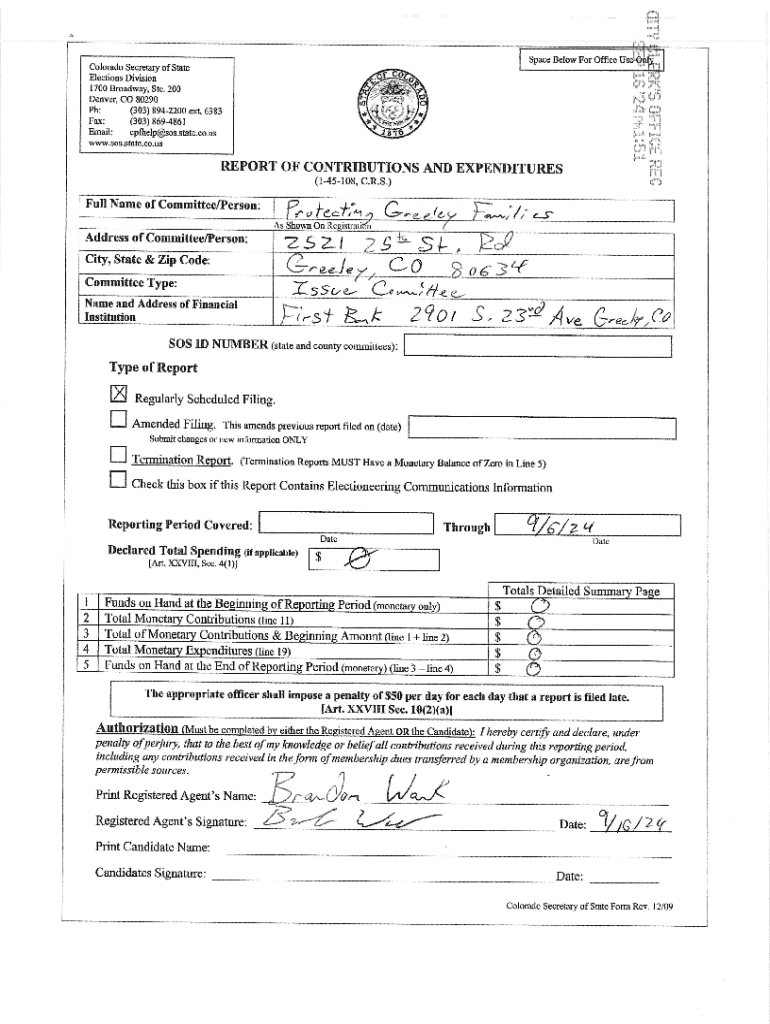 Colorado Secretary of State
Elections Division
1700 Broadway, Ste. 200
Denver, CO 80290
Ph: (303) 894-2200 ext. 6383
Fax: (303) 869-4861
Email: cpfhelp@sos.state.co.us
www.sos.state.co.us
STATE OF COLORADO
1876
Space Below For Office Use Only
CITY CLERK'S OFFICE REC
16 '24 PM1:51
REPORT OF CONTRIBUTIONS AND EXPENDITURES
(1-45-108, C.R.S.)
Full Name of Committee/Person: Protecting Greeley Families
As Shown On Registration
Address of Committee/Person: 2521 25th St. Rd
City, State & Zip Code: Greeley, CO 80634
Committee Type: Issue Committee
Name and Address of Financial
Institution First Bank 2901 S. 23rd Ave Greeley, CO
SOS ID NUMBER (state and county committees):
Type of Report
X Regularly Scheduled Filing.
Amended Filing. This amends previous report filed on (date)
Submit changes or new information ONLY
Termination Report. (Termination Reports MUST Have a Monetary Balance of Zero in Line 5)
Check this box if this Report Contains Electioneering Communications Information
Reporting Period Covered: Through 9/6/24
Date Date
Declared Total Spending (if applicable) $ 0
[Art. XXVIII, Sec. 4(1)]
Totals Detailed Summary Page
1 Funds on Hand at the Beginning of Reporting Period (monetary only) $ 0
2 Total Monetary Contributions (line 11) $ 0
3 Total of Monetary Contributions & Beginning Amount (line 1 + line 2) $ 0
4 Total Monetary Expenditures (line 19) $ 0
5 Funds on Hand at the End of Reporting Period (monetary) (line 3 – line 4) $ 0
The appropriate officer shall impose a penalty of $50 per day for each day that a report is filed late.
[Art. XXVIII Sec. 10(2)(a)]
Authorization (Must be completed by either the Registered Agent OR the Candidate): I hereby certify and declare, under
penalty of perjury, that to the best of my knowledge or belief all contributions received during this reporting period,
including any contributions received in the form of membership dues transferred by a membership organization, are from
permissible sources.
Print Registered Agent's Name: Brandon Wark
Registered Agent's Signature: Date: 9/16/24
Print Candidate Name:
Candidates Signature: Date:
Colorado Secretary of State Form Rev. 12/09